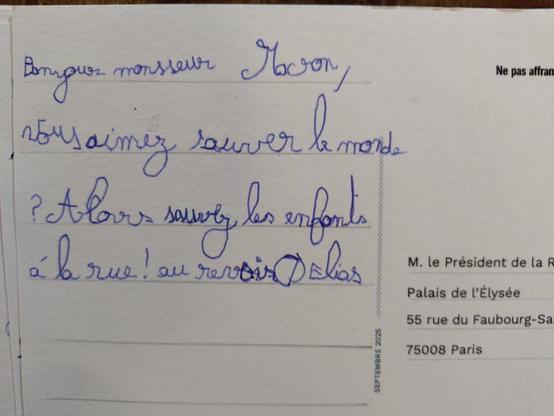 Bonjour monsseur Macron,
vousaimez sauver le monde
? Alors sauvez les enfants
á la rue! au revoir Elias
Ne pas affran
M. le Président de la R
Palais de l'Élysée
55 rue du Faubourg-Sa
75008 Paris
SEPTEMBRE 2025